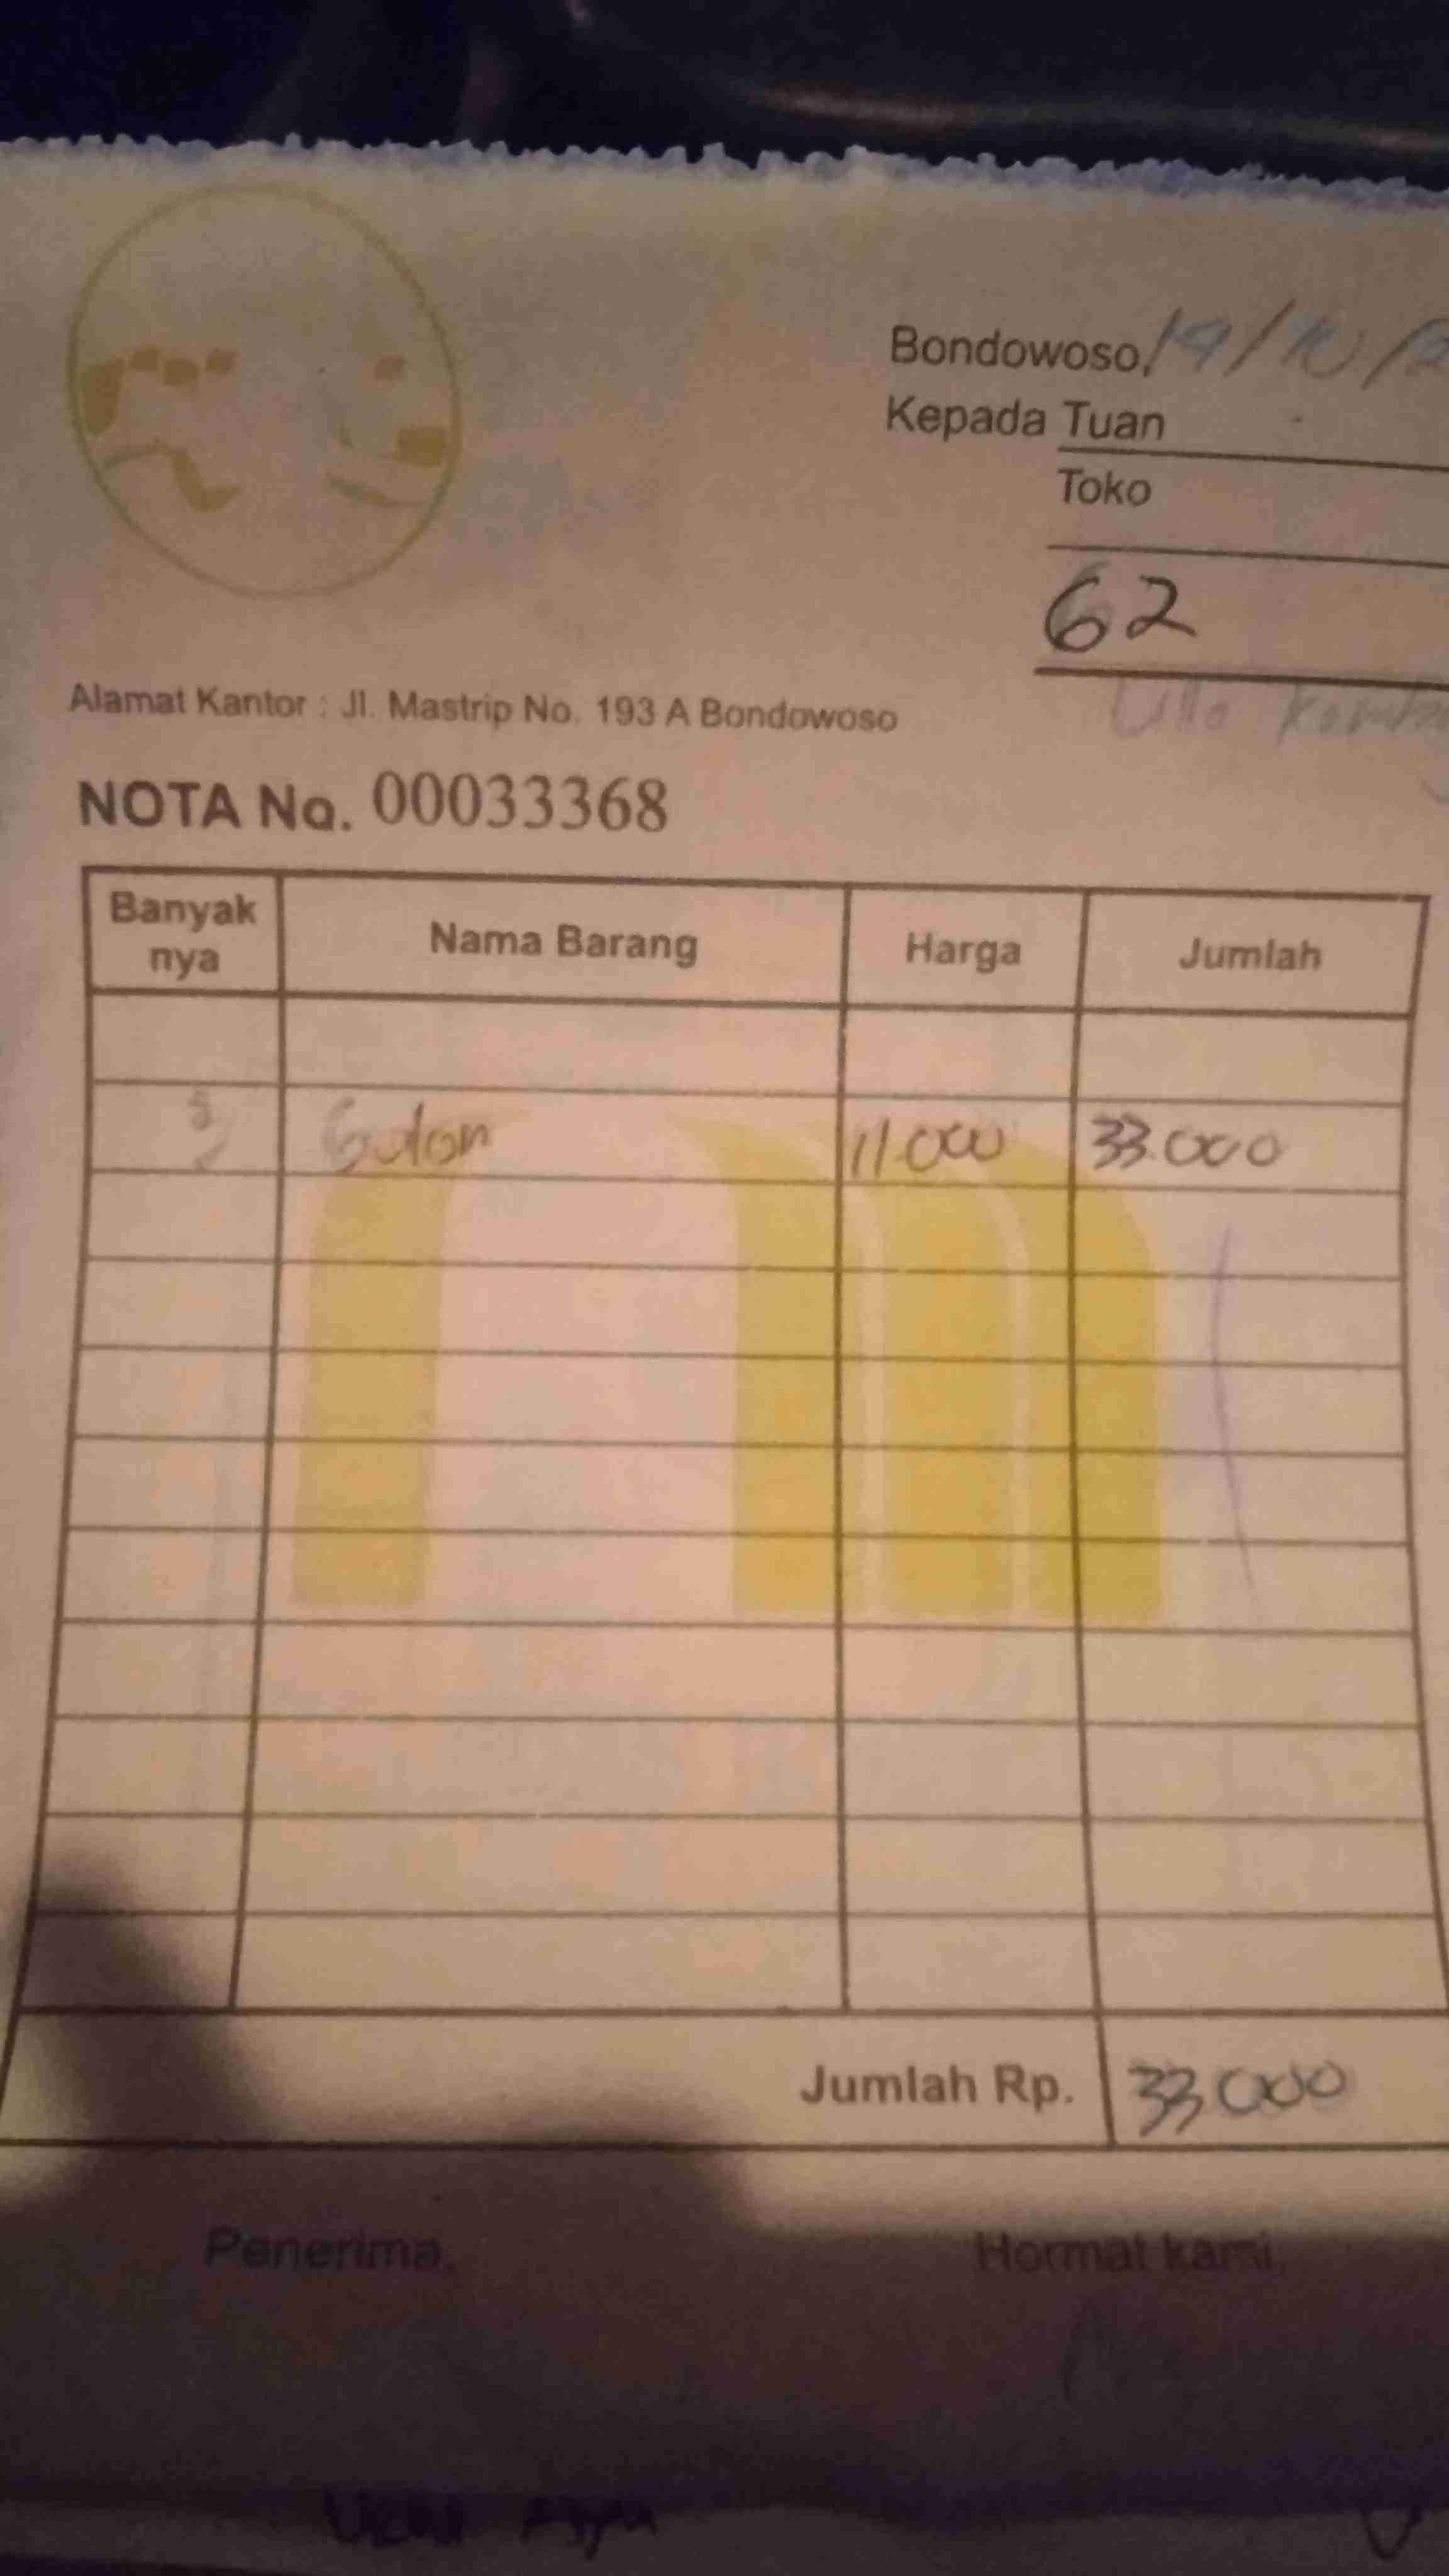 Bondowoso, 19/10/2
Kepada Tuan
Toko
62
Alamat Kantor : Jl. Mastrip No. 193 A Bondowoso
NOTA No. 00033368
Banyak nya Nama Barang Harga Jumlah
3 Galon 11.000 33.000
Jumlah Rp. 33.000
Penerima, Hormat kami,